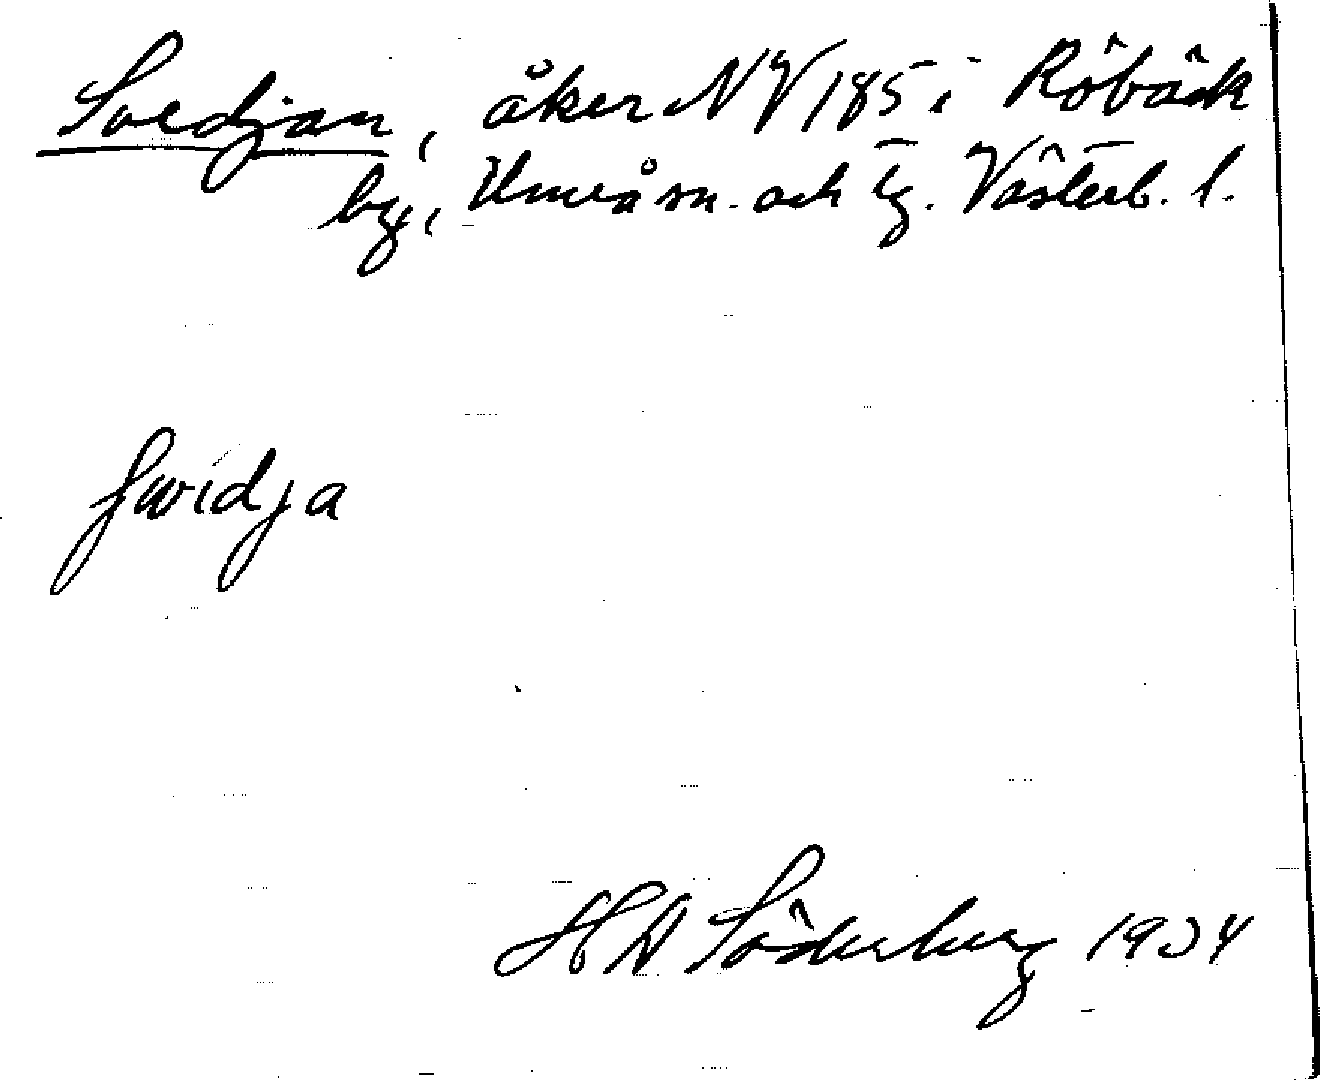 Svedjan, åker NV 185 i Röbäck
by, Umeå sn. och tg. Västerb. l.
svidja
H D Söderberg 1934